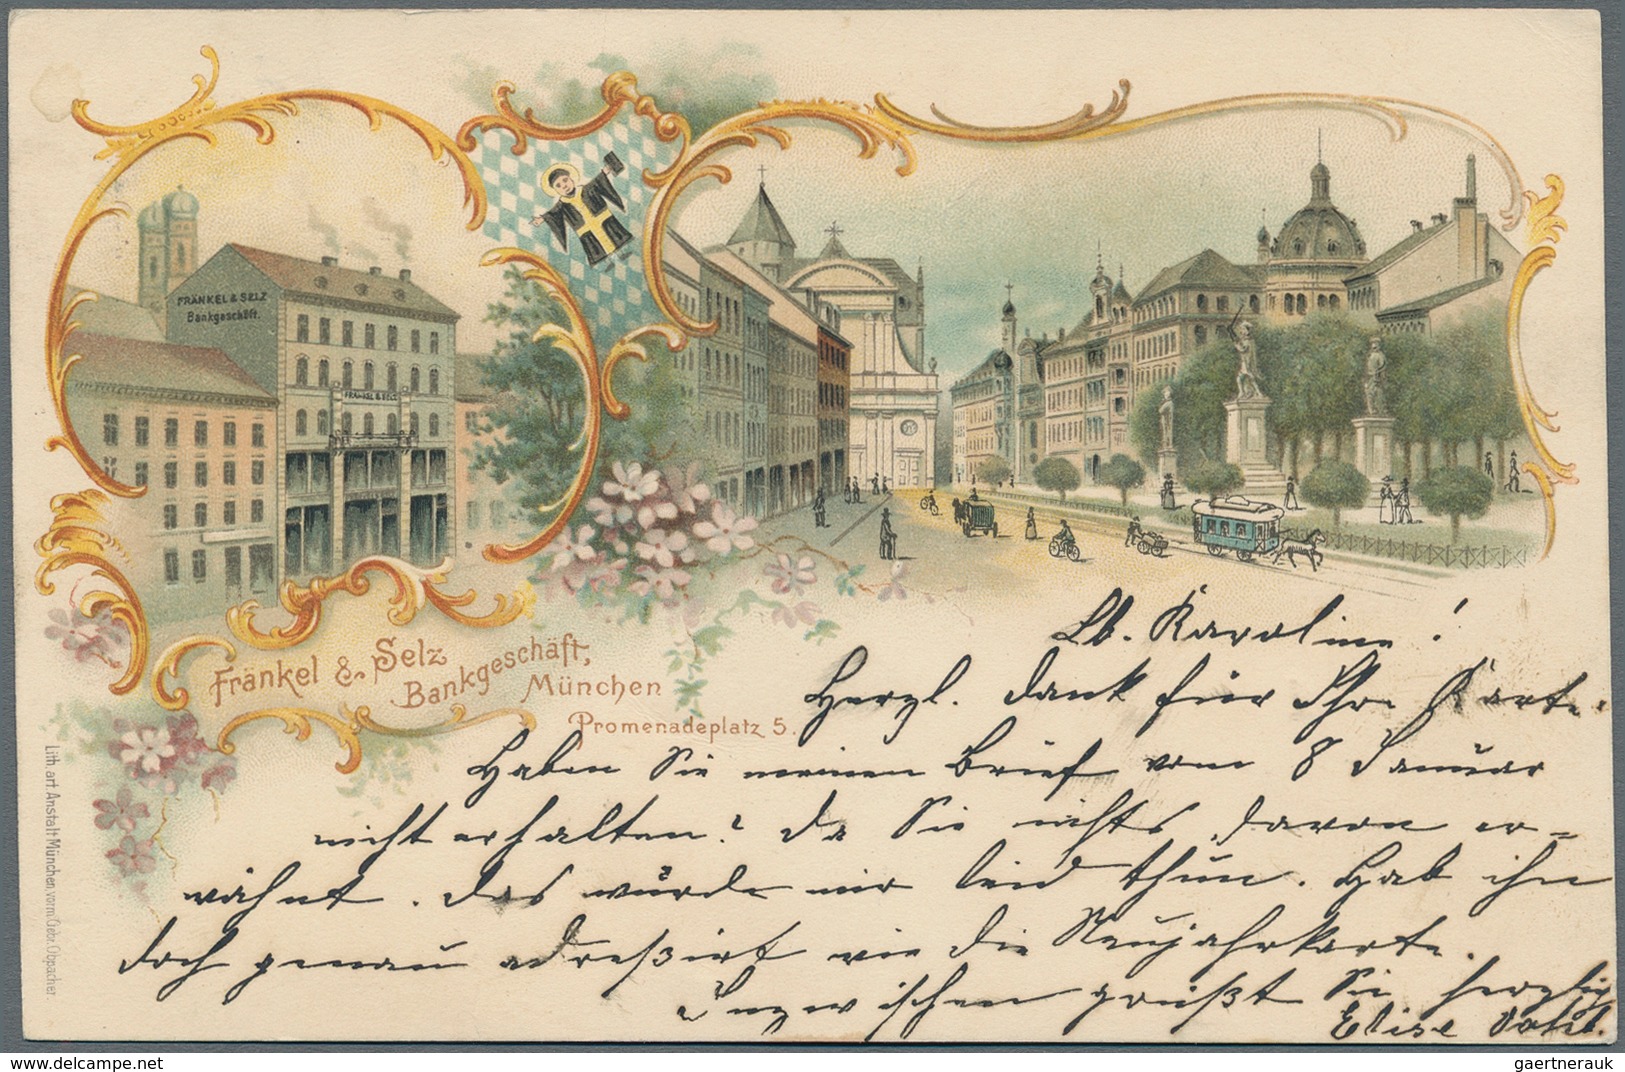 FRÄNKEL & SELZ
Bankgeschäft.
FRÄNKEL & SELZ
Fränkel & Selz
Bankgeschäft,
München
Promenadeplatz 5.
Lith. art. Anstalt München, vorm. Gebr. Obpacher
Lb. Karoline!
Herzl. Dank für Ihre Karte.
Haben Sie meinen Brief vom 8 Januar
nicht erhalten? da Sie nichts davon er=
wähnt. das würde mir leid thun. Hab ihn
doch genau adreßirt wie die Neujahrkarte.
Inzwischen grüßt Sie herzlich
Elise
www.delcampe.net
gaertnerauk